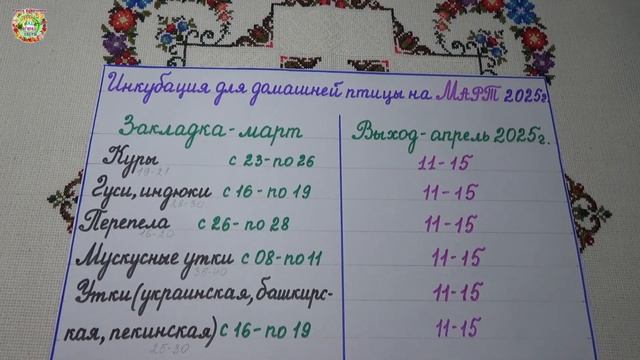 Инкубация для домашней птицы на МАРТ 2025г.
Закладка - март Выход - апрель 2025г.
Куры с 23 - по 26 11-15
19-21
Гуси, индюки с 16 - по 19 11-15
28-30
Перепела с 26 - по 28 11-15
Мускусные утки с 08 - по 11 11-15
Утки (украинская, башкирс- 11-15
кая, пекинская) с 16 - по 19 11-15
25-30